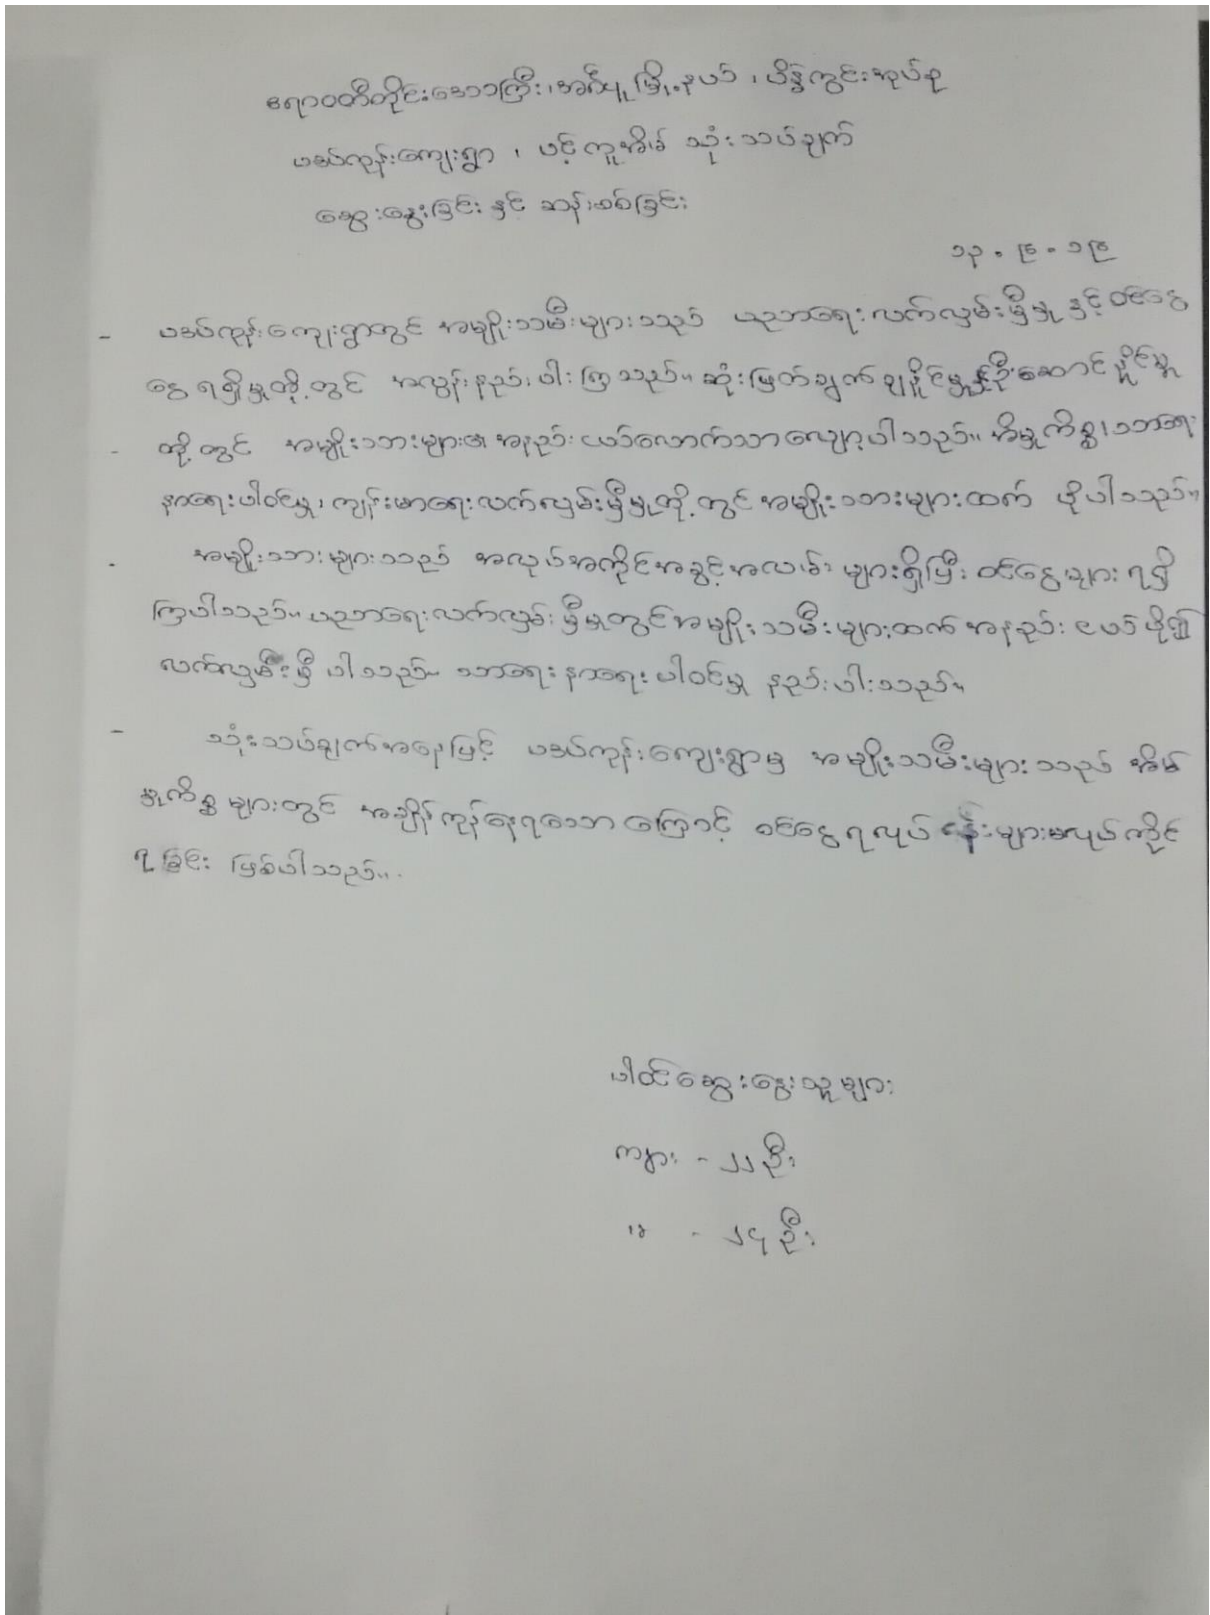 ဧရာဝတီတိုင်းဒေသကြီး၊ အင်္ဂပူမြို့နယ်၊ ပိန္နဲကွင်းအုပ်စု
ဖဒပ်ကုန်းကျေးရွာ ၊ ပင့်ကူအိမ် သုံးသပ်ချက်
ဆွေးနွေးခြင်း နှင့် ဆန်းစစ်ခြင်း
၁၃ . ၆ . ၁၆
- ဖဒပ်ကုန်းကျေးရွာတွင် အမျိုးသမီးများသည် ပညာရေးလက်လှမ်းမှီမှု နှင့် ဝင်ငွေ
ငွေ ရရှိမှုတို့တွင် အလွန်နည်းပါးကြသည်။ ဆုံးဖြတ်ချက်ချနိုင်မှုနှင့်ဦးဆောင်နိုင်မှု
- တို့တွင် အမျိုးသားများ အနည်းငယ်လောက်သာလျော့ပါသည်။ အိမ်မှုကိစ္စ၊ သာရေး
နာရေးပါဝင်မှု၊ ကျန်းမာရေးလက်လှမ်းမှီမှုတို့တွင် အမျိုးသားများထက် ပိုပါသည်။
- အမျိုးသားများသည် အလုပ်အကိုင်အခွင့်အလမ်း များရှိပြီး ဝင်ငွေများ ရရှိ
ကြပါသည်။ ပညာရေးလက်လှမ်းမှီမှုတွင်အမျိုးသမီးများထက် အနည်းငယ်ပို၍
လက်လှမ်းမှီ ပါသည်။ သာရေးနာရေးပါဝင်မှု နည်းပါးသည်။
- သုံးသပ်ချက်အနေဖြင့် ဖဒပ်ကုန်းကျေးရွာမှ အမျိုးသမီးများသည် အိမ်
မှုကိစ္စများတွင် အချိန်ကုန်နေရသောကြောင့် ဝင်ငွေရလုပ်ငန်းများမလုပ်ကိုင်
ရခြင်း ဖြစ်ပါသည်။
ပါဝင်ဆွေးနွေးသူများ
ကျား - ၂၂ ဦး
မ - ၂၄ ဦး